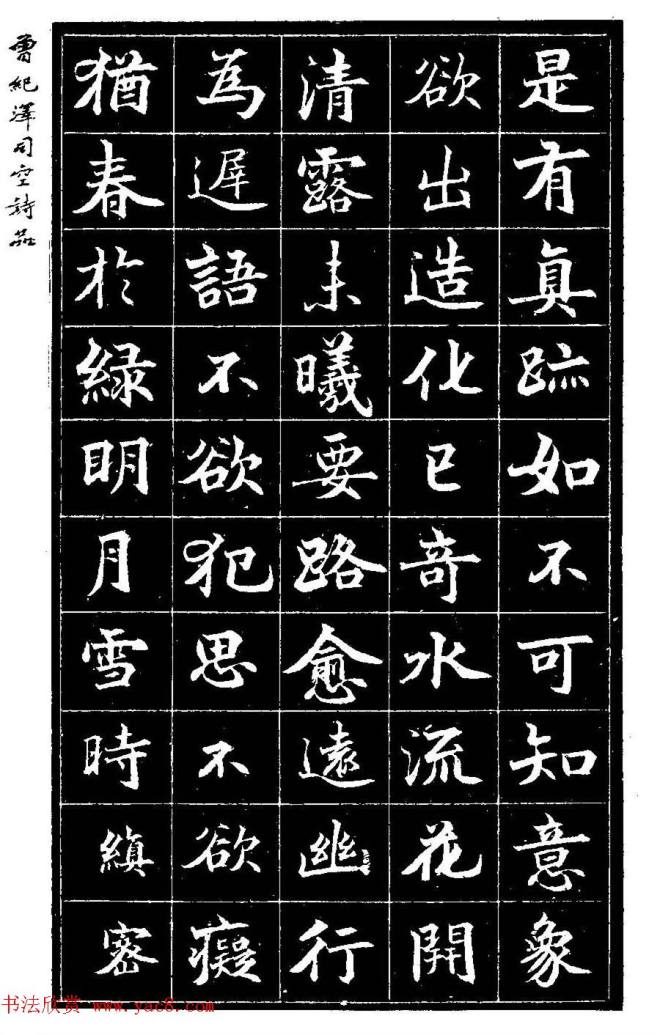 是有真跡如不可知意象
欲出造化已奇水流花開
清露未曦要路愈遠幽行
為遲語不欲犯思不欲癡
猶春於綠明月雪時縝密
曾紀澤司空詩品
书法欣赏 www.yac8.com